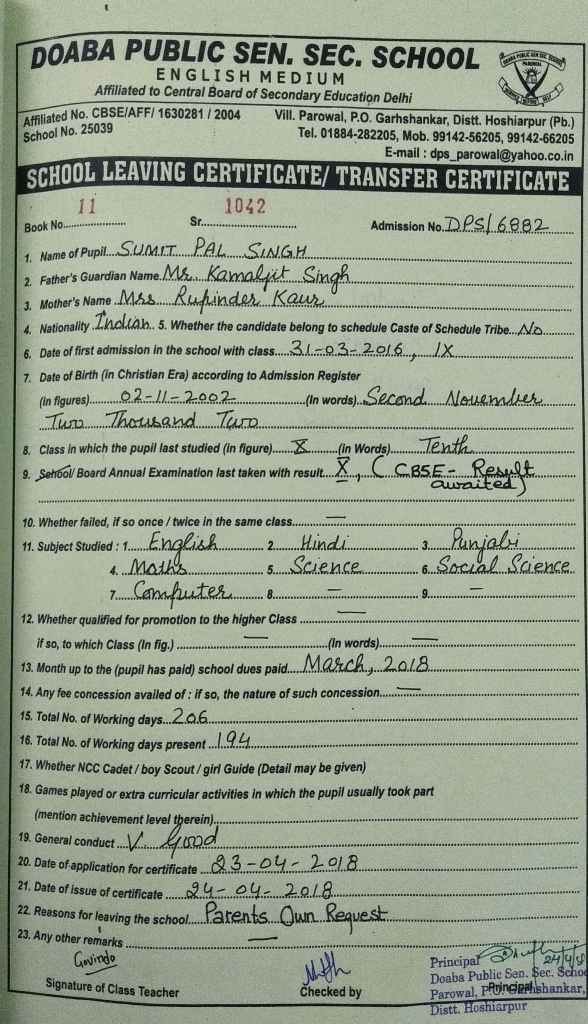 DOABA PUBLIC SEN. SEC. SCHOOL
ENGLISH MEDIUM
Affiliated to Central Board of Secondary Education Delhi
Affiliated No. CBSE/AFF/ 1630281 / 2004
School No. 25039
Vill. Parowal, P.O. Garhshankar, Distt. Hoshiarpur (Pb.)
Tel. 01884-282205, Mob. 99142-56205, 99142-66205
E-mail : dps_parowal@yahoo.co.in
SCHOOL LEAVING CERTIFICATE/ TRANSFER CERTIFICATE
Book No. 11 Sr. 1042 Admission No. DPS/6882
1. Name of Pupil SUMIT PAL SINGH
2. Father's Guardian Name Mr. Kamaljit Singh
3. Mother's Name Mrs Rupinder Kaur
4. Nationality Indian 5. Whether the candidate belong to schedule Caste of Schedule Tribe No
6. Date of first admission in the school with class 31-03-2016, IX
7. Date of Birth (in Christian Era) according to Admission Register
(In figures) 02-11-2002 (In words) Second November
Two Thousand Two
8. Class in which the pupil last studied (in figure) X (in Words) Tenth
9. School/ Board Annual Examination last taken with result X, (CBSE- Result
awaited)
10. Whether failed, if so once / twice in the same class —
11. Subject Studied : 1. English 2. Hindi 3. Punjabi
4. Maths 5. Science 6. Social Science
7. Computer 8. — 9. —
12. Whether qualified for promotion to the higher Class —
if so, to which Class (In fig.) — (In words) —
13. Month up to the (pupil has paid) school dues paid March, 2018
14. Any fee concession availed of : if so, the nature of such concession —
15. Total No. of Working days 206
16. Total No. of Working days present 194
17. Whether NCC Cadet / boy Scout / girl Guide (Detail may be given)
18. Games played or extra curricular activities in which the pupil usually took part
(mention achievement level therein)
19. General conduct V Good
20. Date of application for certificate 23-04-2018
21. Date of issue of certificate 24-04-2018
22. Reasons for leaving the school Parents Own Request
23. Any other remarks —
Govinda
Signature of Class Teacher
Checked by
24/4/18
Principal
Doaba Public Sen. Sec. School
Parowal, P.O. Garhshankar,
Principal
Distt. Hoshiarpur